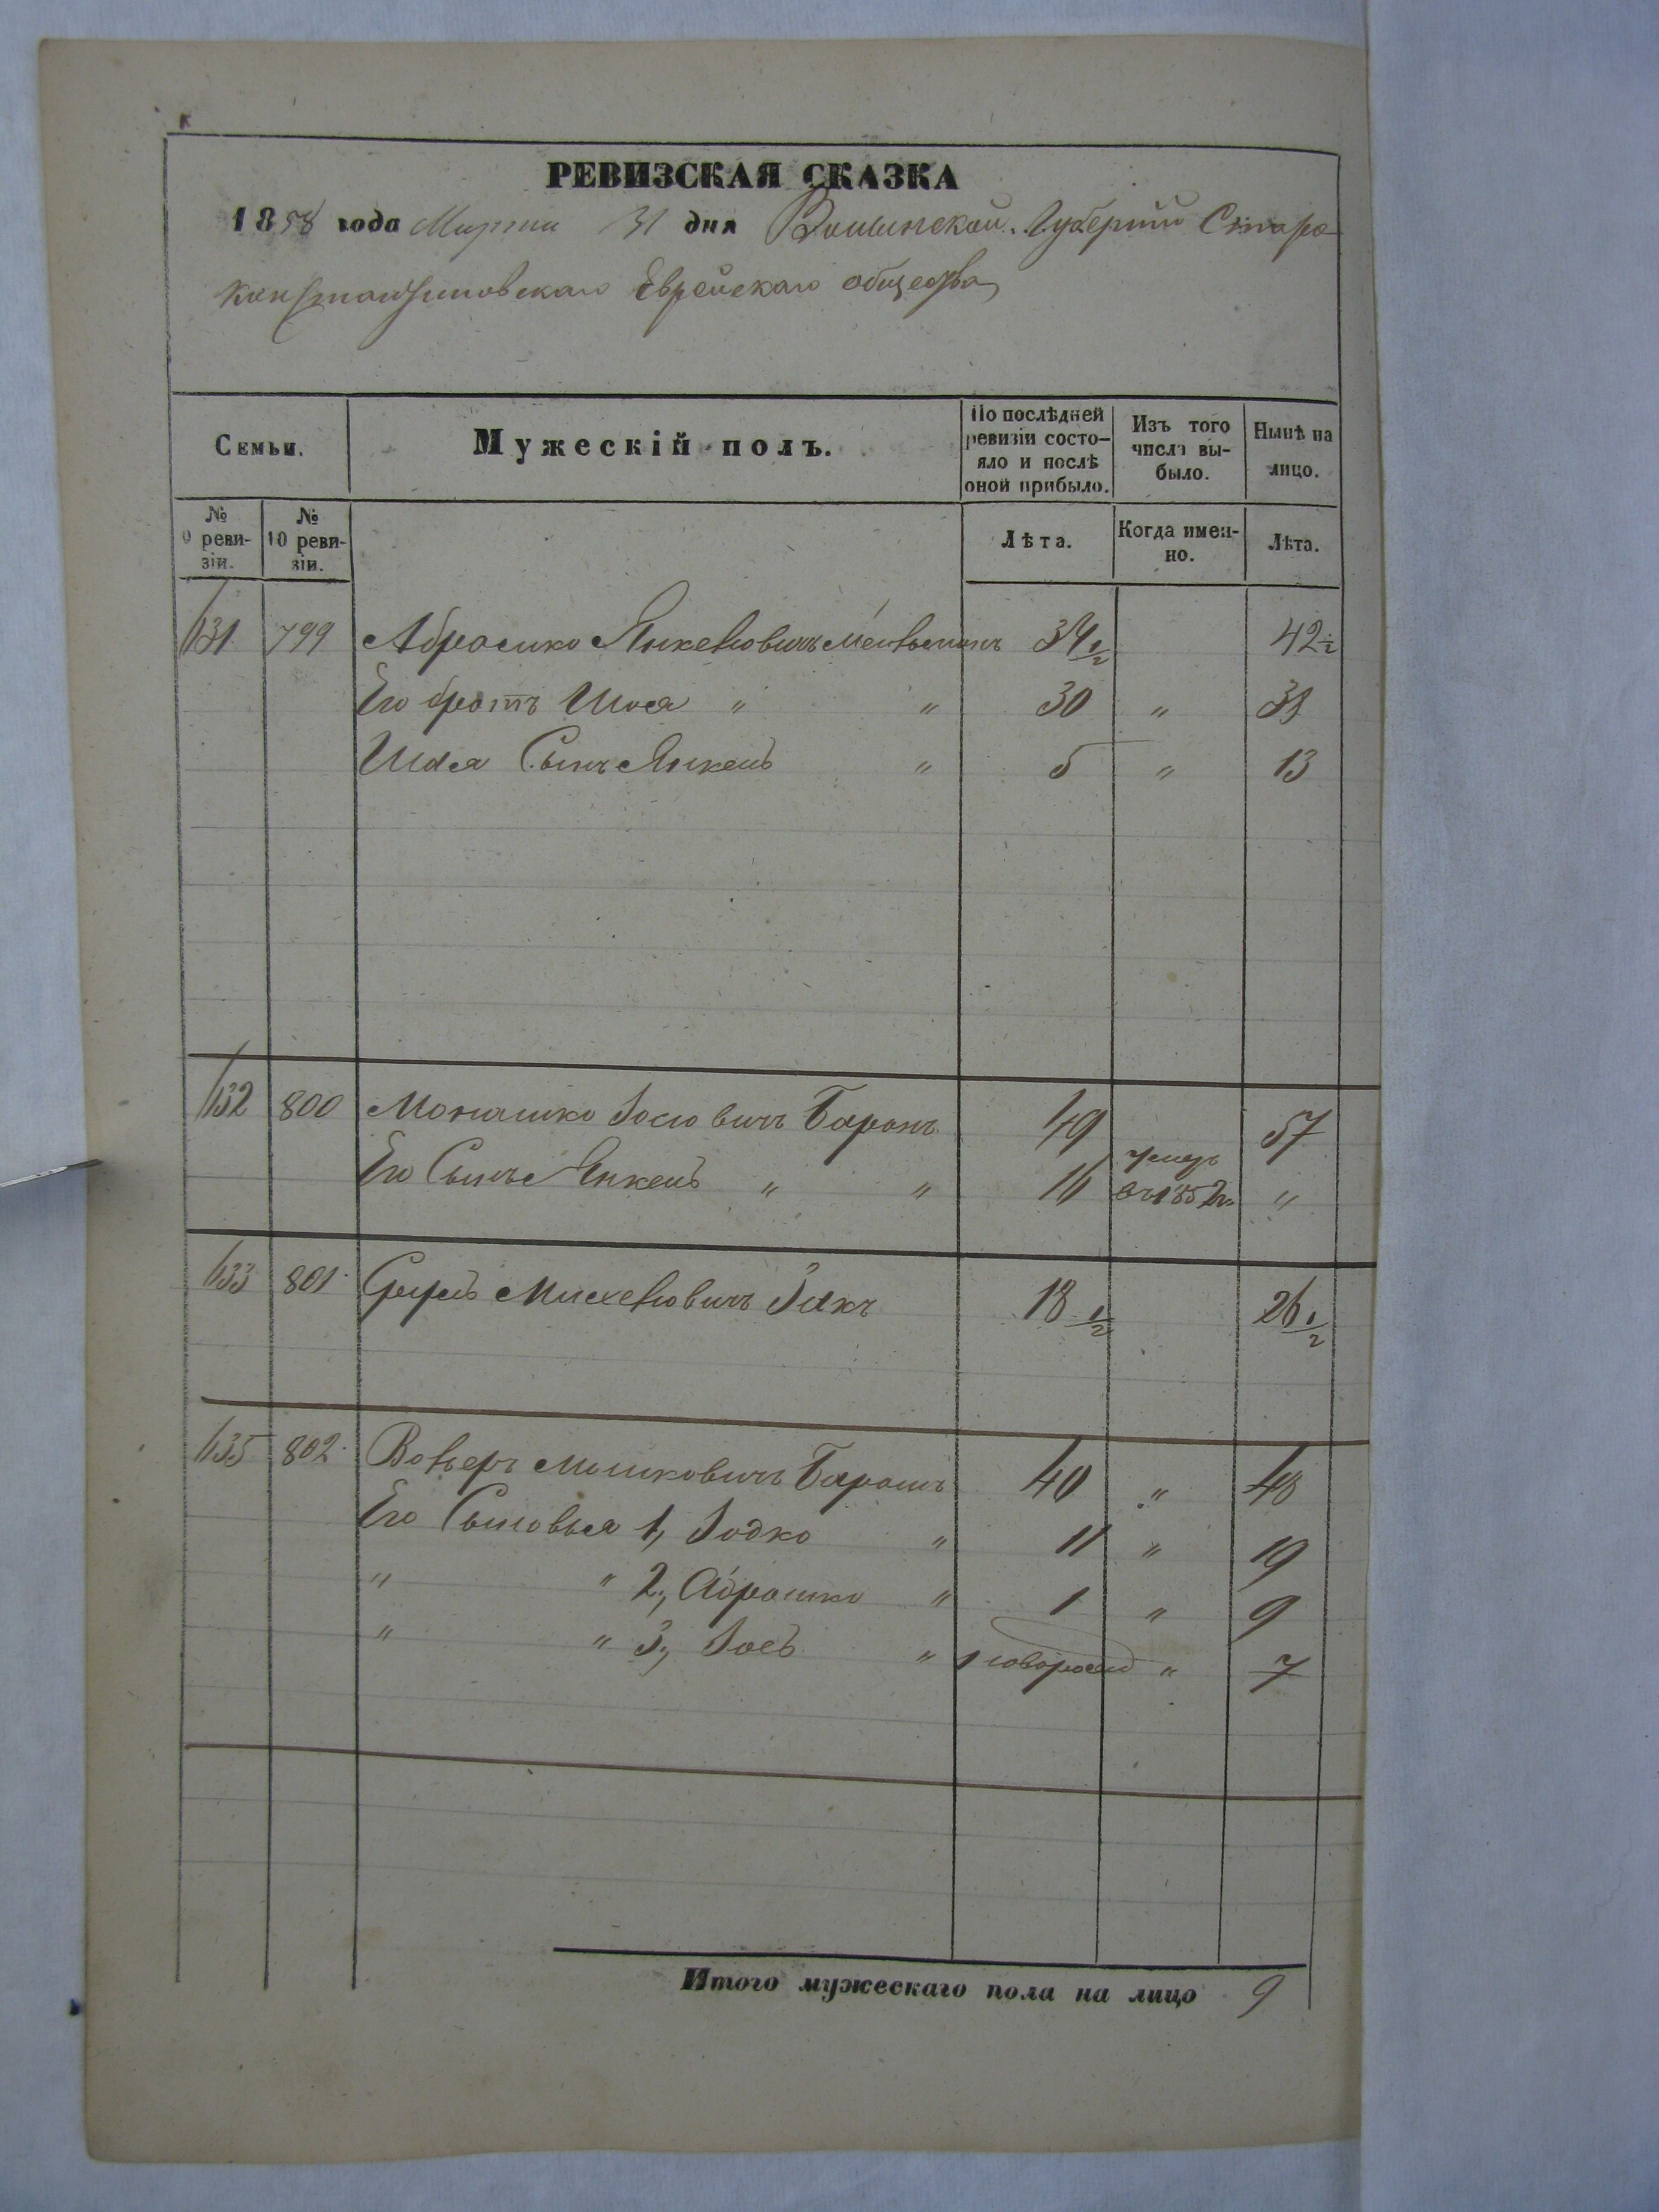 РЕВИЗСКАЯ СКАЗКА
1858 года Марта 31 дня Волынской Губерніи Старо
константиновскаго Еврейскаго общества
Семьи.
Мужескій полъ.
По послѣдней ревизіи состо-
яло и послѣ
оной прибыло.
Изъ того
числа вы-
было.
Нынѣ на
лицо.
№
9 реви-
зіи.
№
10 реви-
зіи.
Лѣта.
Когда имен-
но.
Лѣта.
131 799 Абрамко Янкелювичъ 34 1/2 42 1/2
Его братъ Шоя " " 30 " 38
Шоя Сынъ Янкель " 5 " 13
132 800 Монашко Іосіовичъ Баронъ 49 57
Его Сынъ Янкель " " 16 умеръ въ 1852 г. "
133 801 Мисхелювичъ Закъ 18 1/2 26 1/2
135 802 Вольеръ Мошковичъ 40 " 48
Его Сыновья 1, Іодко " 11 " 19
" " 2, Абрашко " 1 " 9
" " 3, Іось " новорожд " 7
Итого мужескаго пола на лицо 9